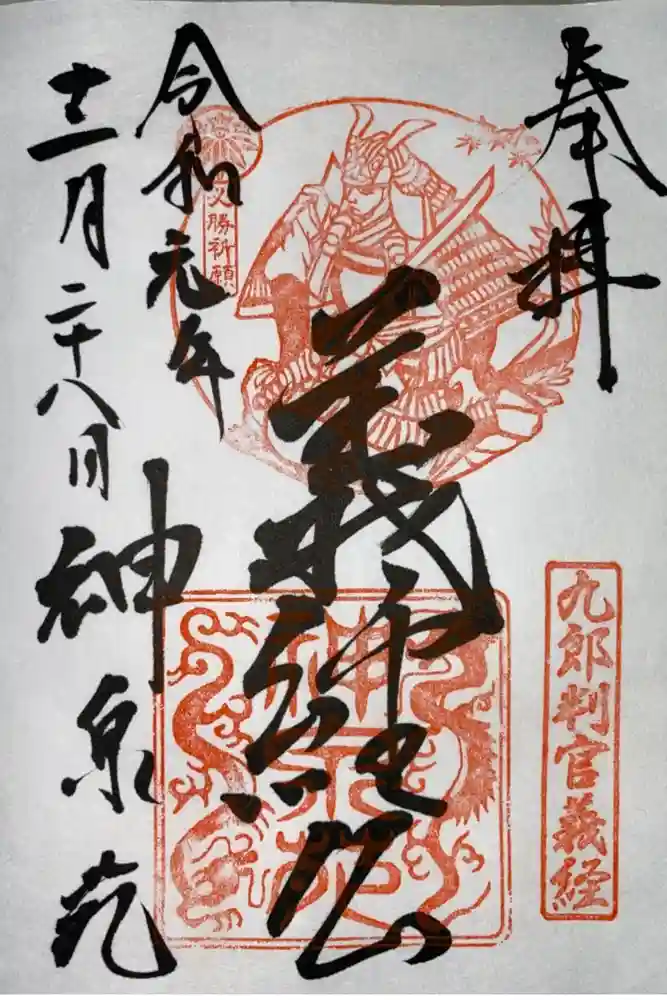 奉拝
九郎判官義経
義経公
必勝祈願
令和元年
十二月二十八日
神泉苑
神泉苑